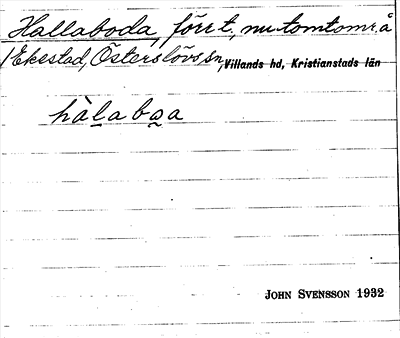 Hallaboda, förr t., nu tomtomr. å
Ekestad, Österslövs sn, Villands hd, Kristianstads län
hàlaboa
JOHN SVENSSON 1932